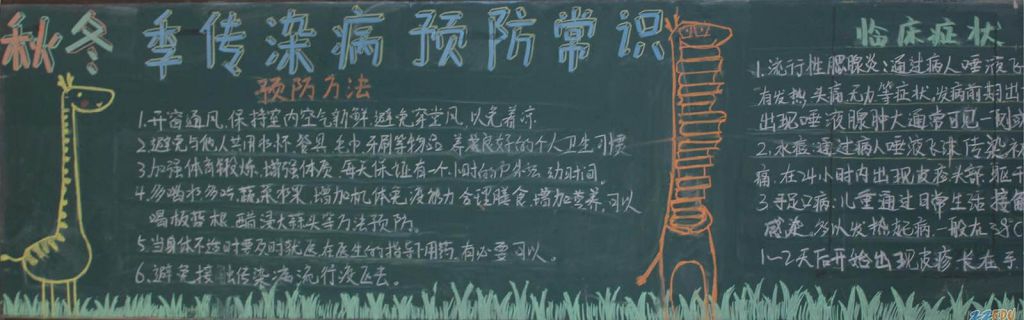 秋冬季传染病预防常识
预防方法
1.开窗通风,保持室内空气新鲜,避免穿堂风,以免着凉
2.避免与他人共用水杯、餐具、毛巾、牙刷等物品,养成良好的个人卫生习惯
3.加强体育锻炼,增强体质,每天保证有一个小时的户外活动时间。
4.多喝水多吃蔬菜水果,增加机体免疫能力,合理膳食,增加营养,可以
喝板蓝根、醋浸大蒜头等方法预防。
5.当身体不适时要及时就医,在医生的指导用药,有必要可以。
6.避免接 传染 流行疫 去。
临床症状
1.流行性腮腺炎:通过病人唾液飞
有发热、头痛、无力等症状,发病前期出
出现唾液腺肿大通常可见一侧或
2.水痘:通过病人唾液飞沫传染
痛,在24小时内出现皮疹头部、躯干
3.手足口病:儿童通过日常生活接触
感染,多以发热起病一般在38℃
1~2天后开始出现皮疹长在手